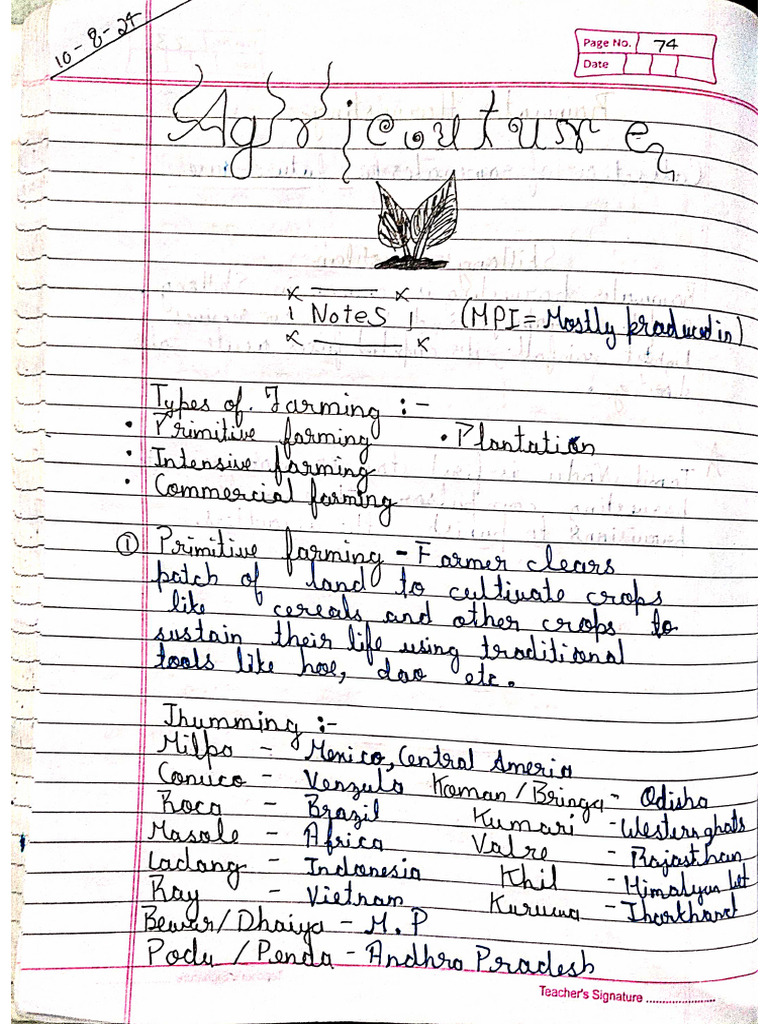 10-8-24
Page No. 74
Date
Agricouture
Notes (MPI = Mostly produced in)
Types of Farming :-
• Primitive farming • Plantation
• Intensive farming
• Commercial farming
① Primitive farming - Farmer clears
patch of land to cultivate crops
like cereals and other crops to
sustain their life using traditional
tools like hoe, dao etc.
Jhumming :-
Milpa - Mexico, Central Ameria
Conuco - Venzula Koman / Bringa - Odisha
Roca - Brazil Kumari - Western ghats
Masole - Africa Valre - Rajasthan
Ladang - Indonesia Khil - Himalyan blt
Ray - Vietnam Kuruwa - Jharkhand
Bewar/Dhaiya - M.P
Podu / Penda - Andhra Pradesh
Teacher's Signature ....................